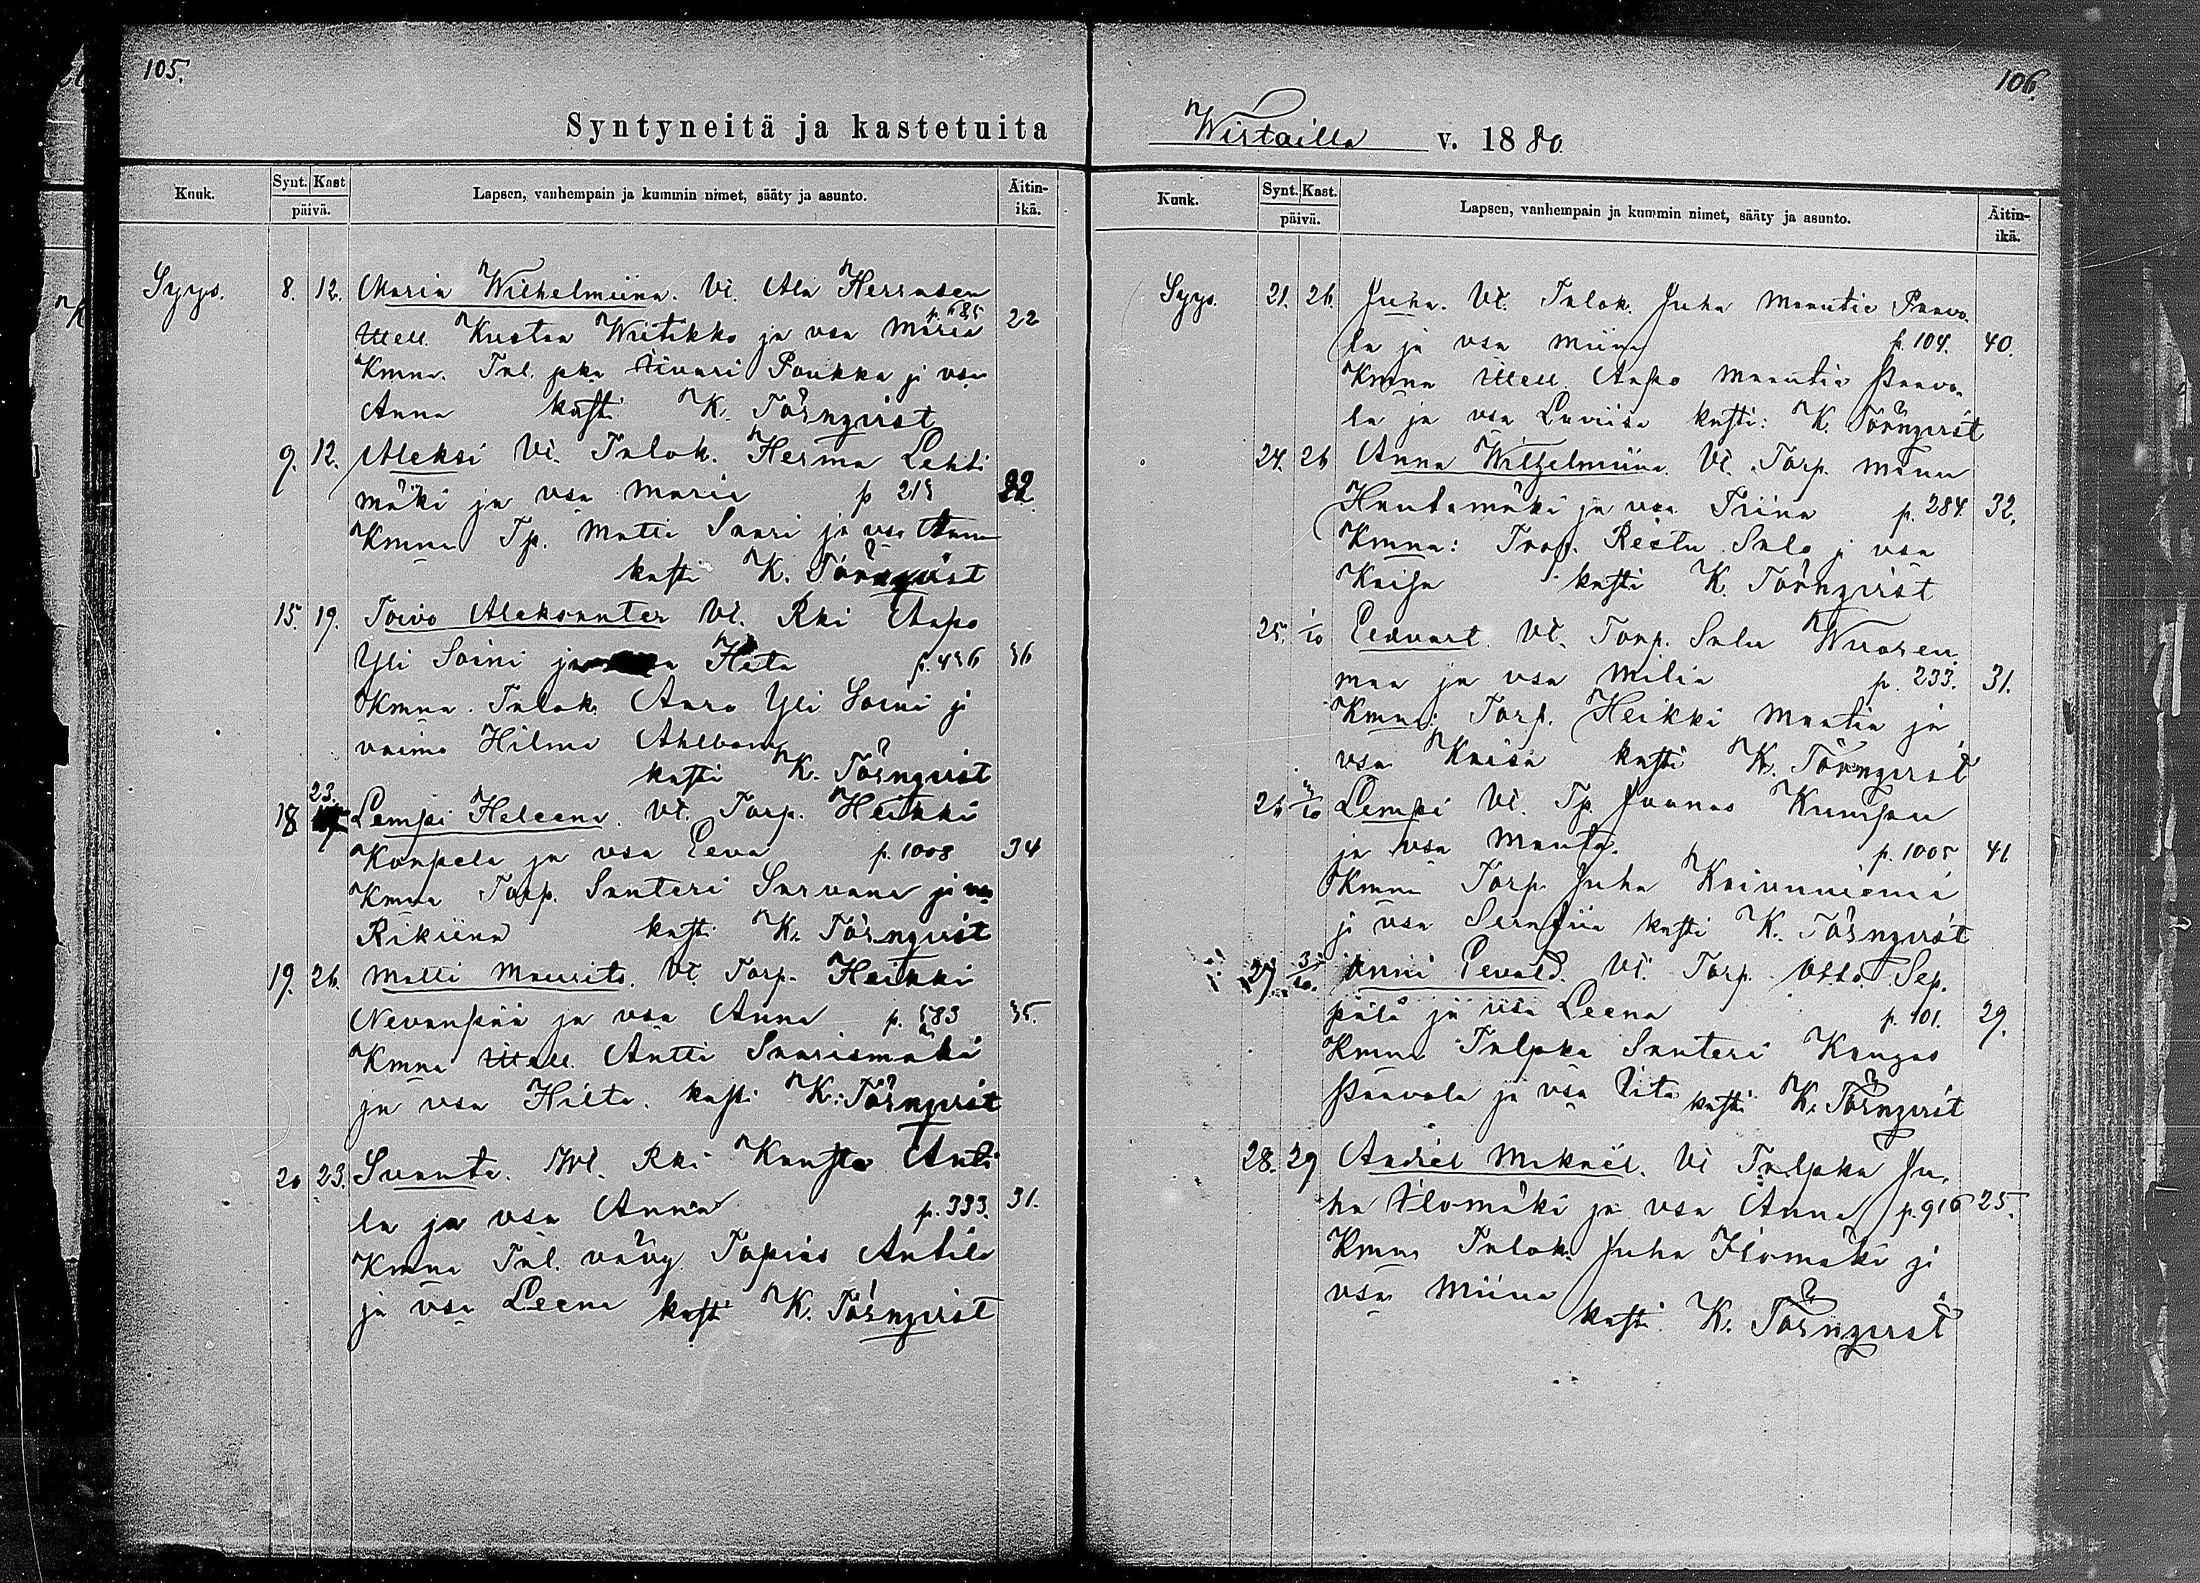 105.
Syntyneitä ja kastetuita
Kuuk.
Synt. Kast
päivä.
Lapsen, vanhempain ja kummin nimet, sääty ja asunto.
Äitin-
ikä.
Syys. 8. 12. Maria Wilhelmiina. Vl. Ala Herrasen
p. 685
Kustaa Wiitikko ja vsa Maria 22
Kmna. Tal. pka Iivari Poukka ja vsa
Anna kasti K. Törnqvist
9. 12. Aleksi Vl. Talok. Herma Lehti
mäki ja vsa Maria p 215 22
Kmna Tp. Matti Saari ja vsa Anna
kasti K. Törnqvist
15. 19. Toivo Aleksantter Vl. Rki Aapo
Yli Soini ja Heta p. 436 36
Kmna. Talok. Aaro Yli Soini j
vaimo Hilma Ahlbom
kasti K. Törnqvist
23.
18 Lempi Heleena. Vl. Torp. Heikki
Konpela ja vsa Eeva p. 1008 34
Kmna Torp. Santeri Sarvana ja vsa
Rikiina kasti K. Törnqvist
19. 26. Matti Maurits. Vl. Torp. Heikki
Nevanpää ja vsa Anna p. 583 35.
Kmna Antti Saarismäki
ja vsa Hilta. kasti K. Törnqvist
20 23. Svante. Vl. Rki Kaustu Anti
la ja vsa Anna p. 333. 31.
Kmna Tal. vävy Topias Antila
ja vsa Leena kasti K. Törnqvist
106.
Wirtailla v. 1880.
Kuuk.
Synt. Kast.
päivä.
Lapsen, vanhempain ja kummin nimet, sääty ja asunto.
Äitin-
ikä.
Syys. 21. 26. Juha. Vl. Talok. Juha Mantie Paavo
la ja vsa Miina p. 104. 40.
Kmna Aapo Mantie Paavo
la ja vsa Loviisa kasti: K. Törnqvist
24. 26 Anna Wilhelmiina. Vl. Torp. Manu
Hautamäki ja vsa Tiina p. 284 32.
Kmna: Torp. Ristu Salo j vsa
Kaisa kasti K. Törnqvist
25. 1/10 Eedvart. Vl. Torp. Salu Wuoren
maa ja vsa Milia p. 233. 31.
Kmna: Torp. Heikki Mantie ja
vsa Kaisa kasti K. Törnqvist
26 3/10 Lempi Vl. Tp Juonas Kumpu
ja vsa Manta. p. 1005 41
Kmna Torp. Juha Koivuniemi
j vsa Serafiia kasti K. Törnqvist
27. 3/10. Anni Eevald. Vl. Torp. Otto Sep.
pälä ja vsa Leena p. 101. 29.
Kmna Talpka Santeri Kangas
Paavola ja vsa Iita kasti K. Törnqvist
28. 29 Andiel Mikael. Vl Talpka Ju
ha Ilomäki ja vsa Anna p. 916 25.
Kmna Talok. Juha Ilomäki j
vsa Miina
kasti. K. Törnqvist